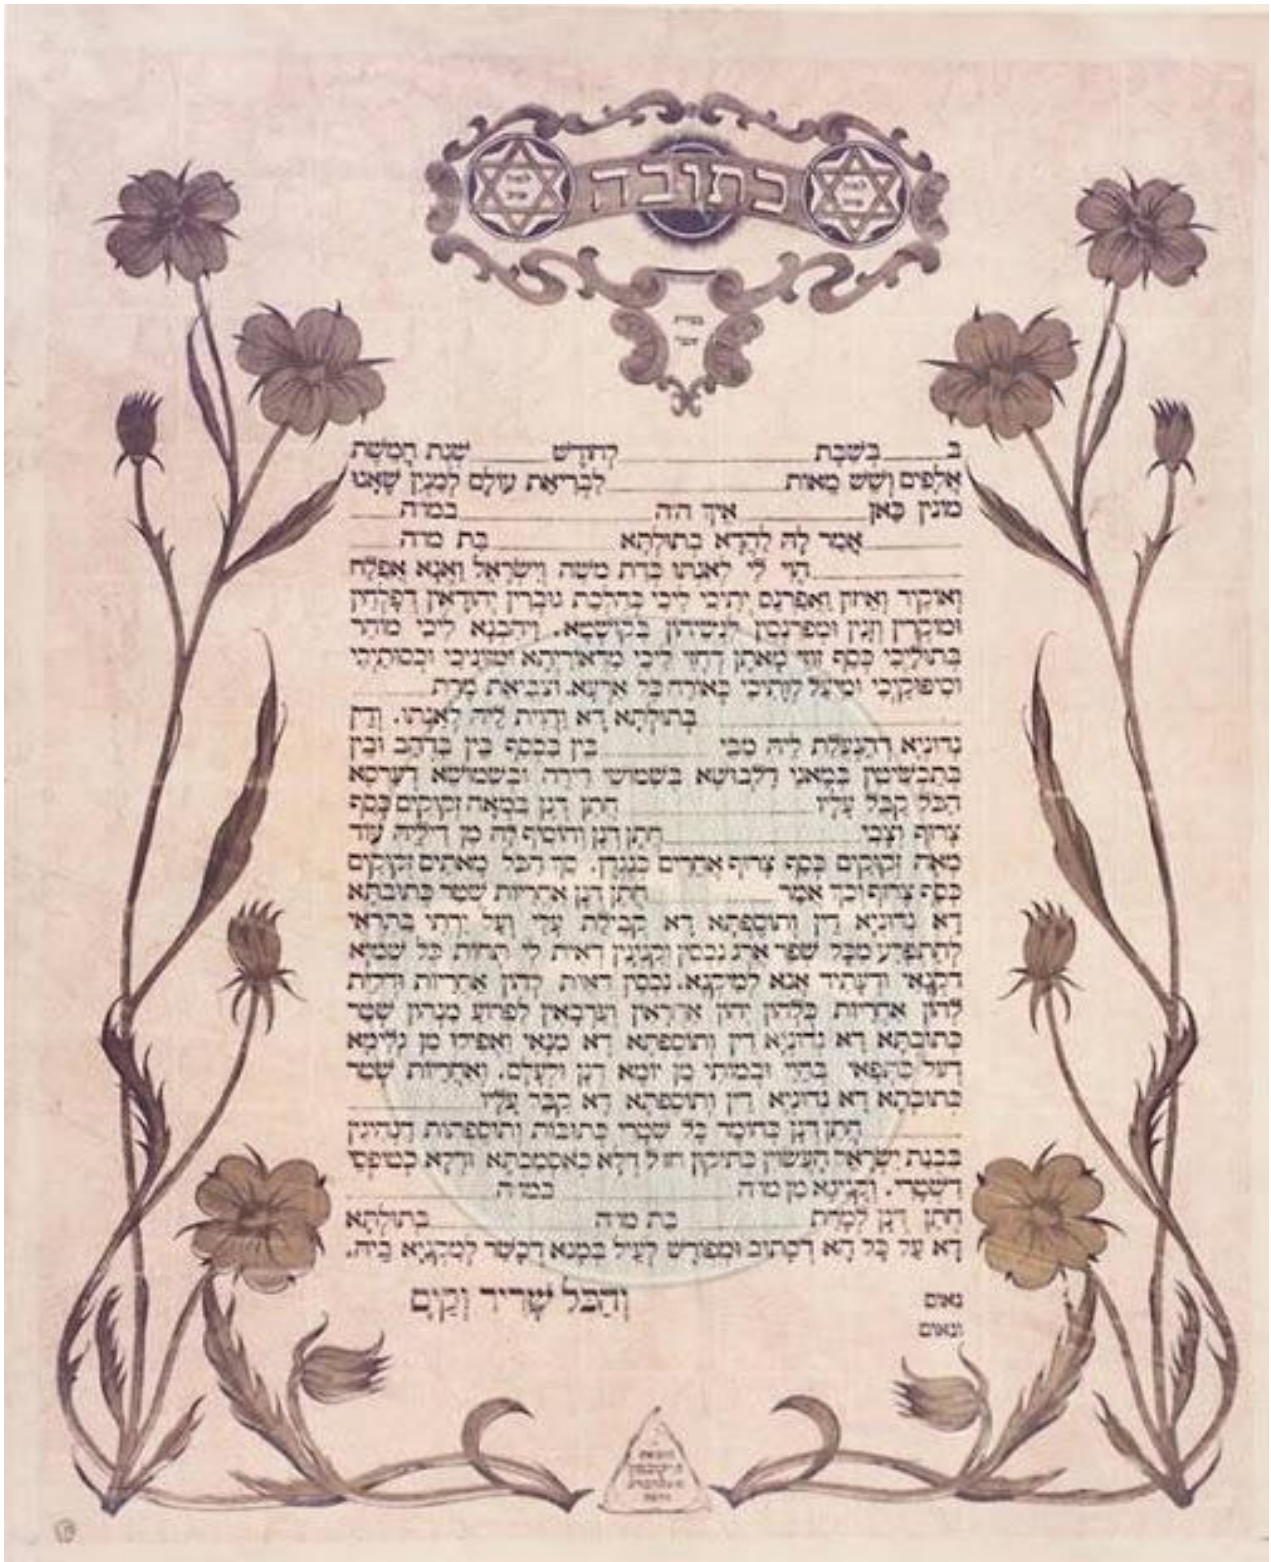 כתובה
ב____בשבת ____ לחודש ____ שנת חמשת
אלפים ושש מאות ____ לבריאת עולם למנין שאנו
מונין כאן ____ איך הח ____ במוה ____
____ אמר לה להדא בתולתא ____ בת מוה ____
____ הוי לי לאנתו כדת משה וישראל ואנא אפלח
ואוקיר ואיזון ואפרנס יתיכי ליכי כהלכת גוברין יהודאין דפלחין
ומוקרין וזנין ומפרנסין לנשיהון בקושטא. ויהבנא ליכי מוהר
בתוליכי כסף זוזי מאתן דחזי ליכי מדאוריתא ומזוניכי וכסותיכי
וסיפוקיכי ומיעל לותיכי כאורח כל ארעא. וצביאת מרת ____
____ בתולתא דא והוית ליה לאנתו. ודין
נדוניא דהנעלת ליה מבי ____ בין בכסף בין בדהב ובין
בתכשיטין במאני דלבושא בשמושי דירה ובשמושא דערסא
הכל קבל עליו ____ חתן דנן במאה זקוקים כסף
צרוף וצבי ____ חתן דנן והוסיף לה מן דיליה עוד
מאה זקוקים כסף צרוף אחרים כנגדן. סך הכל מאתים זקוקים
כסף צרוף וכך אמר ____ חתן דנן אחריות שטר כתובתא
דא נדוניא דין ותוספתא דא קבילת עלי ועל ירתי בתראי
להתפרע מכל שפר ארג נכסין וקנינין דאית לי תחות כל שמיא
דקנאי ודעתיד אנא למיקנא. נכסין דאית להון אחריות ודלית
להון אחריות כלהון יהון אחראין וערבאין לפרוע מנהון שטר
כתובתא דא נדוניא דין ותוספתא דא מנאי ואפילו מן גלימא
דעל כתפאי בחיי ובמותי מן יומא דנן ולעלם. ואחריות שטר
כתובתא דא נדוניא דין ותוספתא דא קבל עליו ____
____ חתן דנן כחומר כל שטרי כתובות ותוספתות דנהיגין
בבנת ישראל העשוין כתיקון חזל דלא כאסמכתא ודלא כטופסי
דשטרי. וקנינא מן מוה ____ במוה ____
חתן דנן למרת ____ בת מוה ____ בתולתא
דא על כל הא דכתוב ומפורש לעיל במנא דכשר למקניא ביה.
והכל שריר וקים
נאום
ונאום